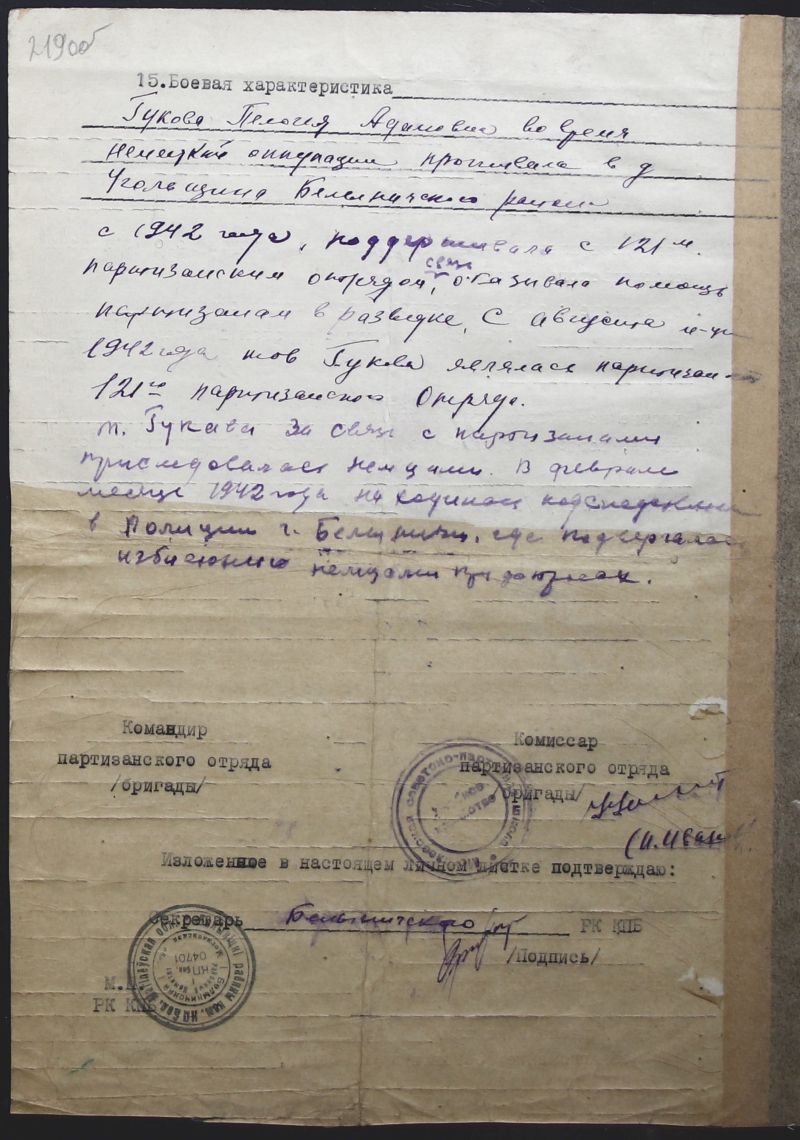 21900б
15.Боевая характеристика
Гукова Пелогия Адамовна во время
немецкой оккупации проживала в д
Угольщина Белыничского района
с 1942 года, поддерживала с 121 м.
связь
партизанским отрядом, оказывала помощь
партизанам в разведке, С Августа м-ца
1942 года тов Гукова являлась партизан
121го партизанского Отряда.
т. Гукава За связь с партизанами
приследовалась немцами. В феврале
месяце 1942 года находилась под следствием
в Полиции г. Белыничи, где подвергалась
избиению немцами при допросах.
Командир
партизанского отряда
/бригады/
Комиссар
партизанского отряда
бригады/
(И.Иванов
Изложенное в настоящем личном листке подтверждаю:
Секретарь Белыничского РК КПБ
/Подпись/
М.П.
РК КПБ
04701